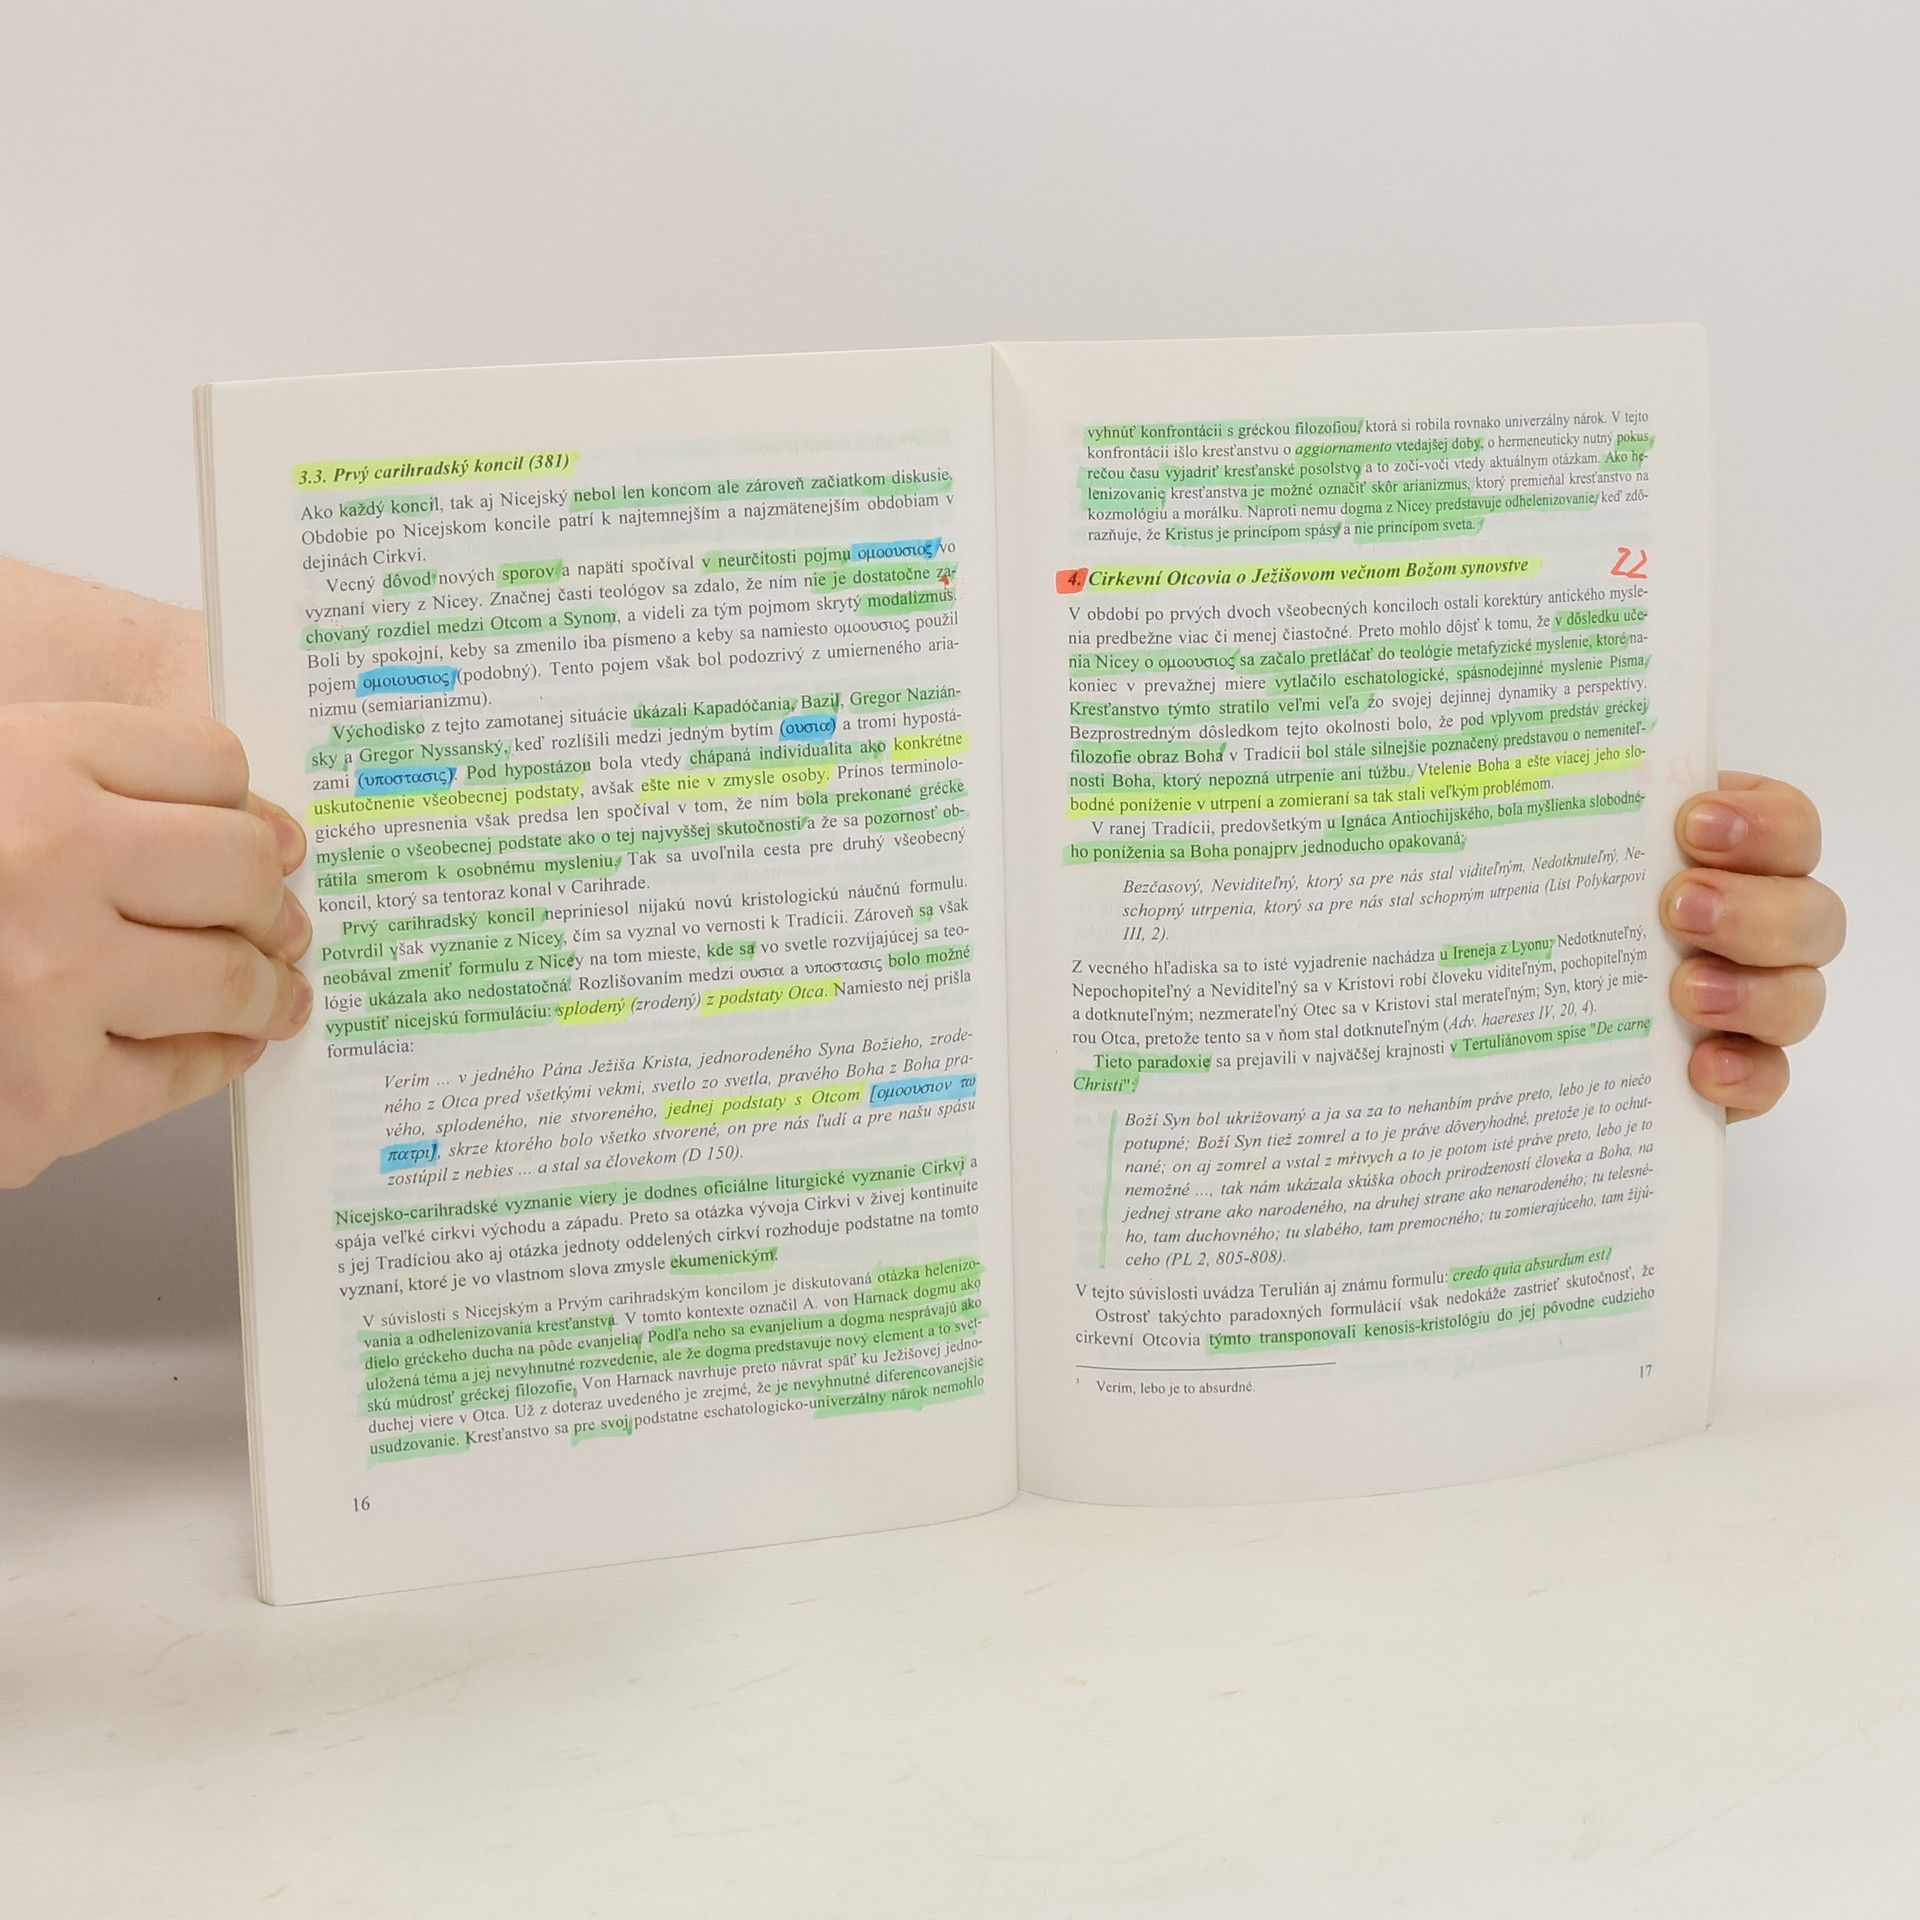 3.3. Prvý carihradský koncil (381)
Ako každý koncil, tak aj Nicejský nebol len koncom ale zároveň začiatkom diskusie.
Obdobie po Nicejskom koncile patrí k najtemnejším a najzmätenejším obdobiam v
dejinách Cirkvi.
Vecný dôvod nových sporov a napätí spočíval v neurčitosti pojmu ομοουσιος vo
vyznaní viery z Nicey. Značnej časti teológov sa zdalo, že ním nie je dostatočne za-
chovaný rozdiel medzi Otcom a Synom, a videli za tým pojmom skrytý modalizmus.
Boli by spokojní, keby sa zmenilo iba písmeno a keby sa namiesto ομοουσιος použil
pojem ομοιουσιος (podobný). Tento pojem však bol podozrivý z umierneného aria-
nizmu (semiarianizmu).
Východisko z tejto zamotanej situácie ukázali Kapadóčania, Bazil, Gregor Nazián-
sky a Gregor Nyssanský, keď rozlíšili medzi jedným bytím (ουσια) a tromi hypostá-
zami (υποστασις). Pod hypostázou bola vtedy chápaná individualita ako konkrétne
uskutočnenie všeobecnej podstaty, avšak ešte nie v zmysle osoby. Prínos terminolo-
gického upresnenia však predsa len spočíval v tom, že ním bola prekonané grécke
myslenie o všeobecnej podstate ako o tej najvyššej skutočnosti a že sa pozornosť ob-
rátila smerom k osobnému mysleniu. Tak sa uvoľnila cesta pre druhý všeobecný
koncil, ktorý sa tentoraz konal v Carihrade.
Prvý carihradský koncil nepriniesol nijakú novú kristologickú náučnú formulu.
Potvrdil však vyznanie z Nicey, čím sa vyznal vo vernosti k Tradícii. Zároveň sa však
neobával zmeniť formulu z Nicey na tom mieste, kde sa vo svetle rozvíjajúcej sa teo-
lógie ukázala ako nedostatočná. Rozlišovaním medzi ουσια a υποστασις bolo možné
vypustiť nicejskú formuláciu: splodený (zrodený) z podstaty Otca. Namiesto nej prišla
formulácia:
Verím ... v jedného Pána Ježiša Krista, jednorodeného Syna Božieho, zrode-
ného z Otca pred všetkými vekmi, svetlo zo svetla, pravého Boha z Boha pra-
vého, splodeného, nie stvoreného, jednej podstaty s Otcom [ομοουσιον τω
πατρι], skrze ktorého bolo všetko stvorené, on pre nás ľudí a pre našu spásu
zostúpil z nebies ... a stal sa človekom (D 150).
Nicejsko-carihradské vyznanie viery je dodnes oficiálne liturgické vyznanie Cirkvi a
spája veľké cirkvi východu a západu. Preto sa otázka vývoja Cirkvi v živej kontinuite
s jej Tradíciou ako aj otázka jednoty oddelených cirkví rozhoduje podstatne na tomto
vyznaní, ktoré je vo vlastnom slova zmysle ekumenickým.
V súvislosti s Nicejským a Prvým carihradským koncilom je diskutovaná otázka helenizo-
vania a odhelenizovania kresťanstva. V tomto kontexte označil A. von Harnack dogmu ako
dielo gréckeho ducha na pôde evanjelia. Podľa neho sa evanjelium a dogma nesprávajú ako
uložená téma a jej nevyhnutné rozvedenie, ale že dogma predstavuje nový element a to svet-
skú múdrosť gréckej filozofie. Von Harnack navrhuje preto návrat späť ku Ježišovej jedno-
duchej viere v Otca. Už z doteraz uvedeného je zrejmé, že je nevyhnutné diferencovanejšie
usudzovanie. Kresťanstvo sa pre svoj podstatne eschatologicko-univerzálny nárok nemohlo
16
vyhnúť konfrontácii s gréckou filozofiou, ktorá si robila rovnako univerzálny nárok. V tejto
konfrontácii išlo kresťanstvu o aggiornamento vtedajšej doby, o hermeneuticky nutný pokus
rečou času vyjadriť kresťanské posolstvo a to zoči-voči vtedy aktuálnym otázkam. Ako he-
lenizovanie kresťanstva je možné označiť skôr arianizmus, ktorý premieňal kresťanstvo na
kozmológiu a morálku. Naproti nemu dogma z Nicey predstavuje odhelenizovanie, keď zdô-
razňuje, že Kristus je princípom spásy a nie princípom sveta.
22
4. Cirkevní Otcovia o Ježišovom večnom Božom synovstve
V období po prvých dvoch všeobecných konciloch ostali korektúry antického mysle-
nia predbežne viac či menej čiastočné. Preto mohlo dôjsť k tomu, že v dôsledku uče-
nia Nicey o ομοουσιος sa začalo pretláčať do teológie metafyzické myslenie, ktoré na-
koniec v prevažnej miere vytlačilo eschatologické, spásnodejinné myslenie Písma.
Kresťanstvo týmto stratilo veľmi veľa zo svojej dejinnej dynamiky a perspektívy.
Bezprostredným dôsledkom tejto okolnosti bolo, že pod vplyvom predstáv gréckej
filozofie obraz Boha v Tradícii bol stále silnejšie poznačený predstavou o nemeniteľ-
nosti Boha, ktorý nepozná utrpenie ani túžbu. Vtelenie Boha a ešte viacej jeho slo-
bodné poníženie v utrpení a zomieraní sa tak stali veľkým problémom.
V ranej Tradícii, predovšetkým u Ignáca Antiochijského, bola myšlienka slobodné-
ho poníženia sa Boha ponajprv jednoducho opakovaná:
Bezčasový, Neviditeľný, ktorý sa pre nás stal viditeľným, Nedotknuteľný, Ne-
schopný utrpenia, ktorý sa pre nás stal schopným utrpenia (List Polykarpovi
III, 2).
Z vecného hľadiska sa to isté vyjadrenie nachádza u Ireneja z Lyonu: Nedotknuteľný,
Nepochopiteľný a Neviditeľný sa v Kristovi robí človeku viditeľným, pochopiteľným
a dotknuteľným; nezmerateľný Otec sa v Kristovi stal merateľným; Syn, ktorý je mie-
rou Otca, pretože tento sa v ňom stal dotknuteľným (Adv. haereses IV, 20, 4).
Tieto paradoxie sa prejavili v najväčšej krajnosti v Tertuliánovom spise "De carne
Christi":
Boží Syn bol ukrižovaný a ja sa za to nehanbím práve preto, lebo je to niečo
potupné; Boží Syn tiež zomrel a to je práve dôveryhodné, pretože je to ochut-
nané; on aj zomrel a vstal z mŕtvych a to je potom isté práve preto, lebo je to
nemožné ..., tak nám ukázala skúška oboch prirodzeností človeka a Boha, na
jednej strane ako narodeného, na druhej strane ako nenarodeného; tu telesné-
ho, tam duchovného; tu slabého, tam premocného; tu zomierajúceho, tam žijú-
ceho (PL 2, 805-808).
V tejto súvislosti uvádza Terulián aj známu formulu: credo quia absurdum est.
Ostrosť takýchto paradoxných formulácií však nedokáže zastrieť skutočnosť, že
cirkevní Otcovia týmto transponovali kenosis-kristológiu do jej pôvodne cudzieho
Verím, lebo je to absurdné.
17